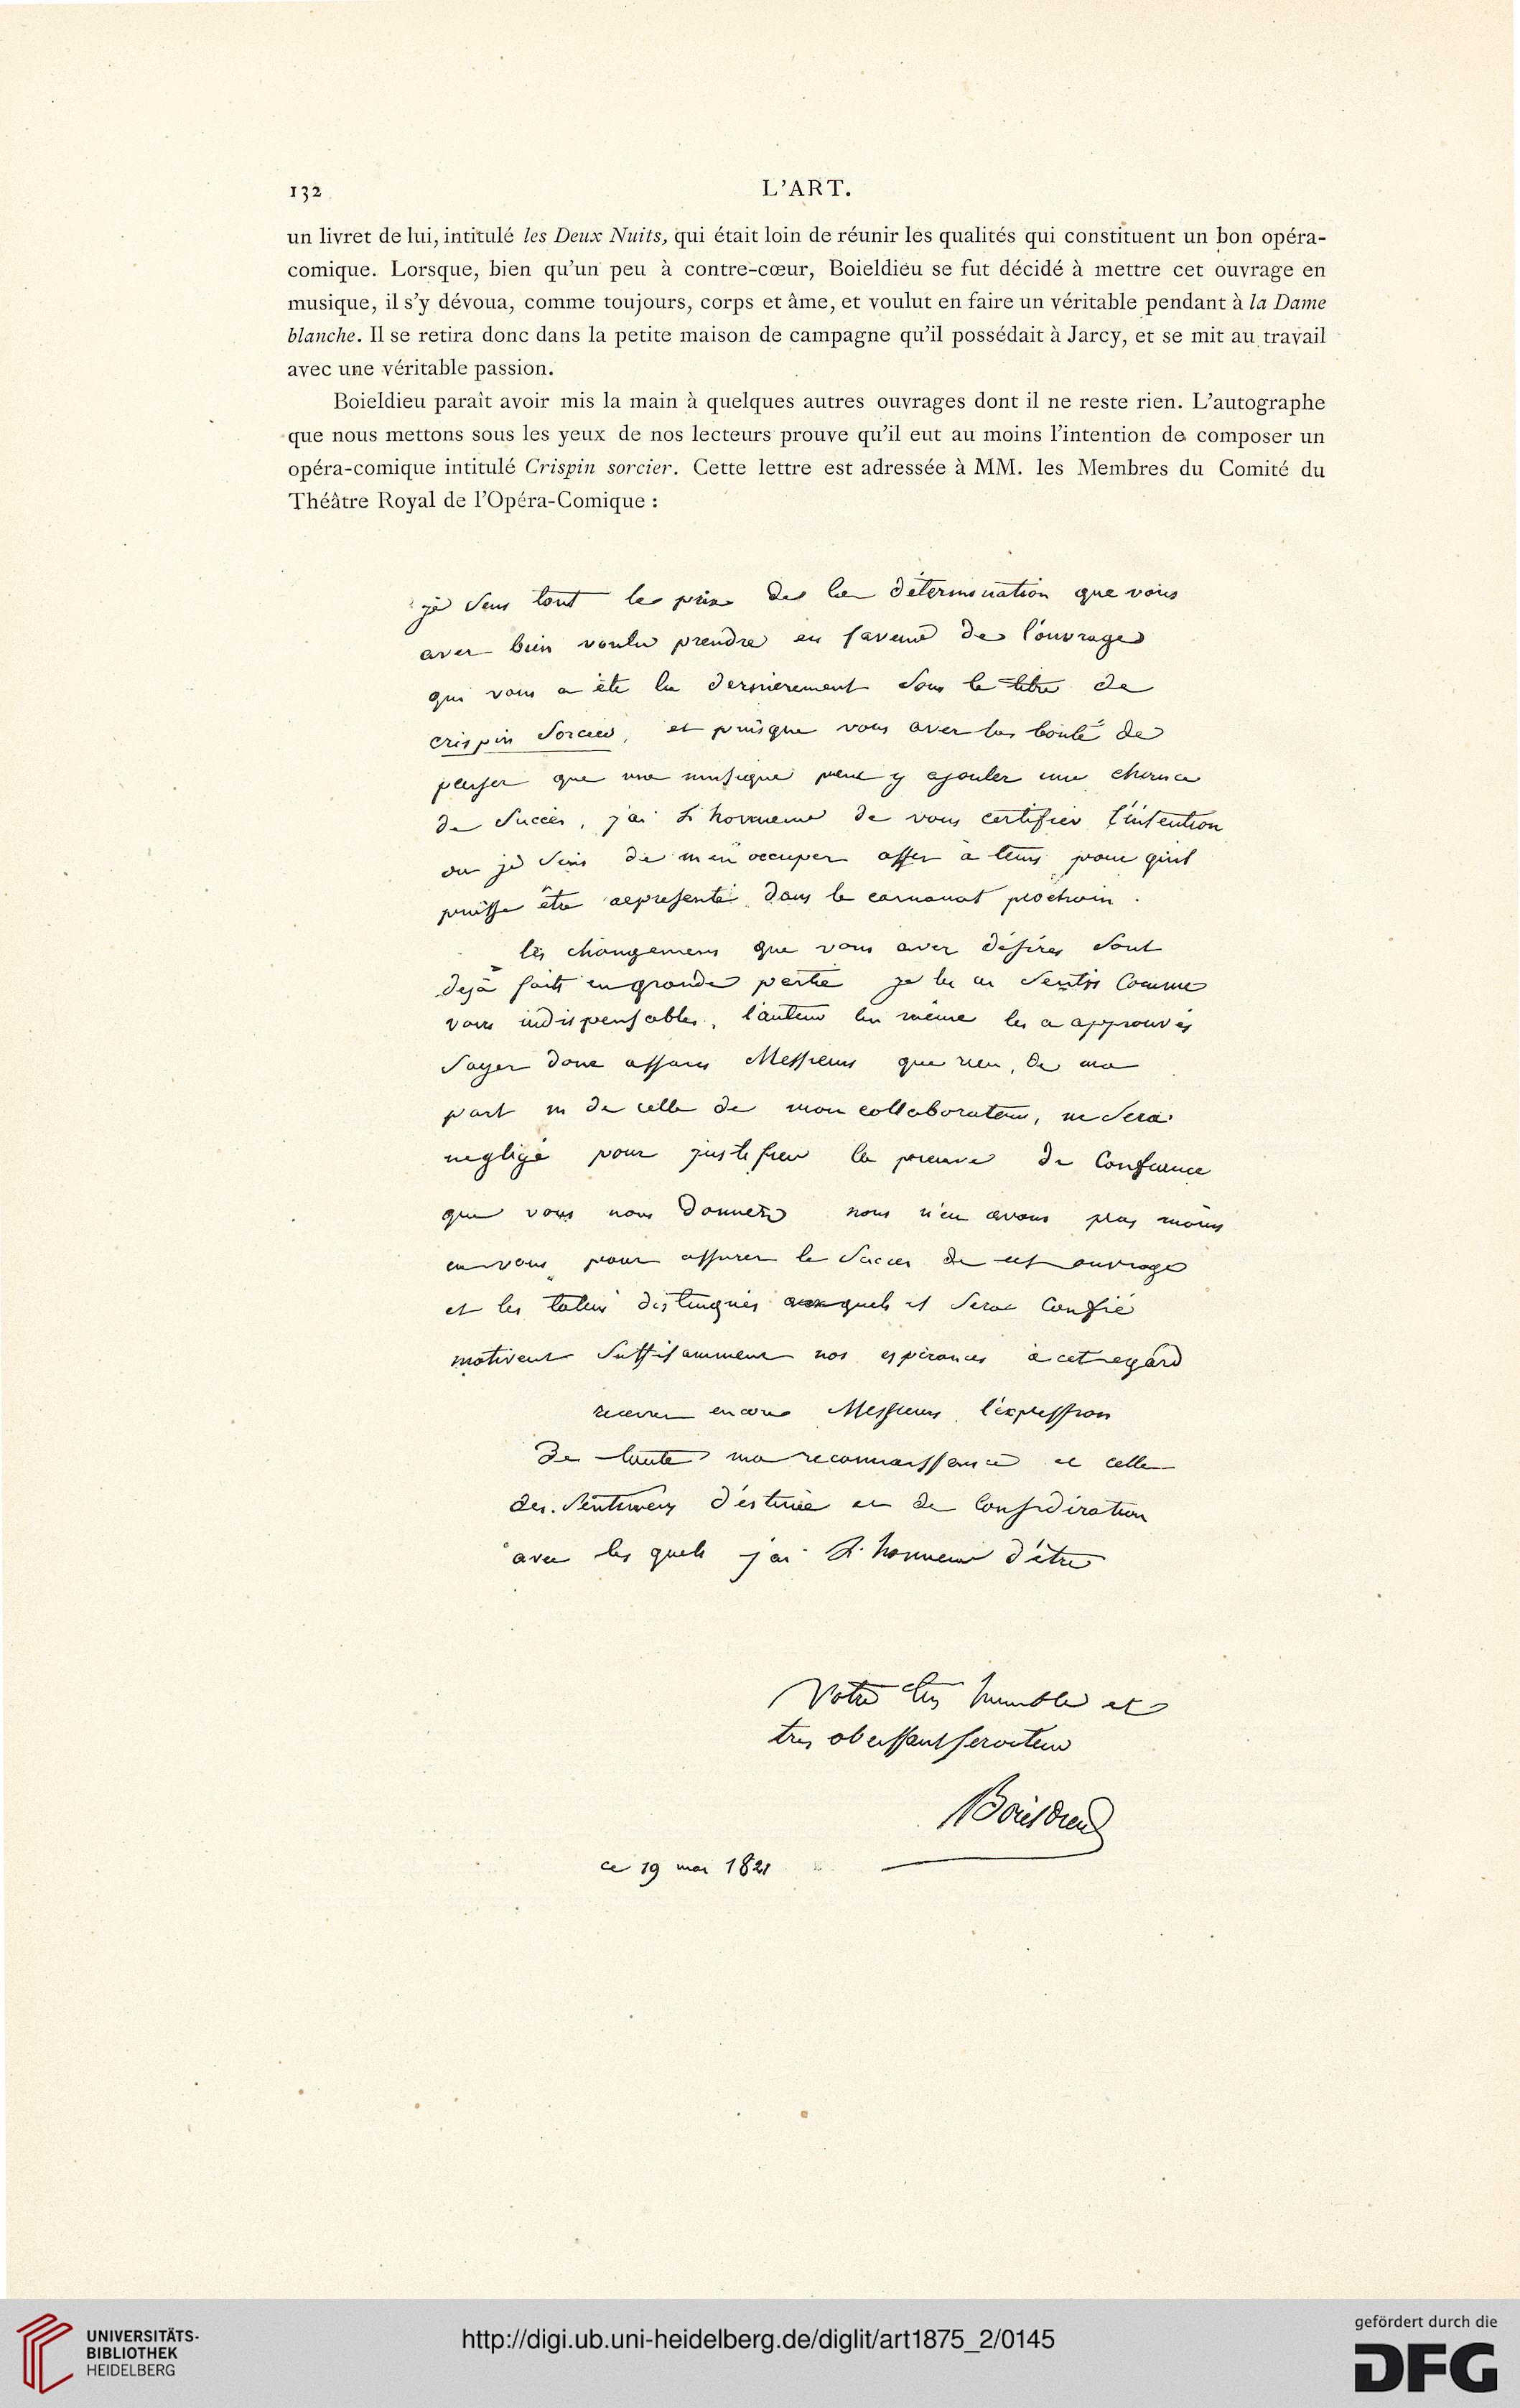 132
L'ART.
un livret de lui, intitulé les Deux Nuits, qui était loin de réunir les qualités qui constituent un bon opéra-
comique. Lorsque, bien qu'un peu à contre-cœur, Boieldieu se fut décidé à mettre cet ouvrage en
musique, il s'y dévoua, comme toujours, corps et âme, et voulut en faire un véritable pendant à la Dame
blanche. Il se retira donc dans la petite maison de campagne qu'il possédait à Jarcy, et se mit au travail
avec une véritable passion.
Boieldieu paraît avoir mis la main à quelques autres ouvrages dont il ne reste rien. L'autographe
que nous mettons sous les yeux de nos lecteurs prouve qu'il eut au moins l'intention de composer un
opéra-comique intitulé Crispin sorcier. Cette lettre est adressée à MM. les Membres du Comité du
Théâtre Royal de l'Opéra-Comique :
je sens tout le prix de la détermination que vous
avez bien voulu prendre en faveur de l'ouvrage
qui vous a été lu dernierement sous le titre de
crispin Sorcier, et puisque vous avez la bonté de
penser que ma musique peut y ajouter une chance
de Succès, j'ai L'honneur de vous certifier l'intention
ou je suis de m'en occuper assez a tems pour qu'il
puisse être representé dans le carnaval prochain.
les changemens que vous avez désirés sont
dejà faits en grande partie je les ai sentis comme
vous indispensables, l'auteur lui même les a approuvés
Soyez donc assurés Messieurs que rien, de ma
part ni de celle de mon collaborateur, ne sera
negligé pour justifier la preuve de confiance
que vous nous donnez nous n'en avons pas moins
en vous pour assurer le succès de cet ouvrage
et les talens distingués auxquels il sera confié
motivent suffisamment nos espérances à cet egard
recevez encore Messieurs l'expression
De toute ma reconnaissance et celle
des sentimens d'estime et de considération
avec les quels j'ai L'honneur d'être
Votre très humble et
tres obeissant serviteur
Boieldieu
ce 19 mai 1821
UNIVERSITÄTS-
BIBLIOTHEK
HEIDELBERG
http://digi.ub.uni-heidelberg.de/diglit/art1875_2/0145
gefördert durch die
DFG